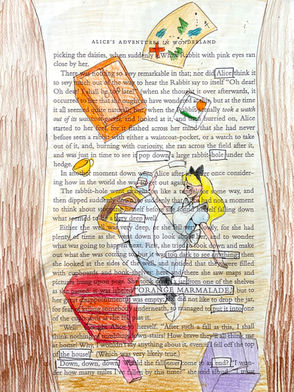 ALICE'S ADVENTURES IN WONDERLAND
picking the daisies, when suddenly a White Rabbit with pink eyes ran
close by her.
There was nothing so very remarkable in that; nor did Alice think it
so very much out of the way to hear the Rabbit say to itself "Oh dear!
Oh dear! I shall be too late!" (when she thought it over afterwards, it
occurred to her that she ought to have wondered at this, but at the time
it all seemed quite natural); but, when the Rabbit actually took a watch
out of its waistcoat-pocket, and looked at it, and then hurried on, Alice
started to her feet, for it flashed across her mind that she had never
before seen a rabbit with either a waistcoat-pocket, or a watch to take
out of it, and, burning with curiosity, she ran across the field after it,
and was just in time to see it pop down a large rabbit-hole under the
hedge.
In another moment down went Alice after it, never once consider-
ing how in the world she was to get out again.
The rabbit-hole went straight on like a tunnel for some way, and
then dipped suddenly down, so suddenly that Alice had not a moment
to think about stopping herself before she found herself falling down
what seemed to be a very deep well.
Either the well was very deep, or she fell very slowly, for she had
plenty of time as she went down to look about her, and to wonder
what was going to happen next. First, she tried to look down and make
what she was coming to, but it was too dark to see anything; then
she looked at the sides of the well, and noticed that they were filled
with cupboards and book-shelves: here and there she saw maps and
pictures hung upon pegs. She
labelled "ORANGE MARMALADE,"
it was empty: she did not like to drop the jar, for
put it into
"Well!" thought Alice to herself. "After such a fall as this, I shall
think nothing of tumbling down-stairs! How brave they'll all think me
at home! Why, I wouldn't say anything about it, even if I fell off the top
of the house!" (Which was very likely true.)
Down, down, down.
how many miles I've fallen by this time?" she said aloud.